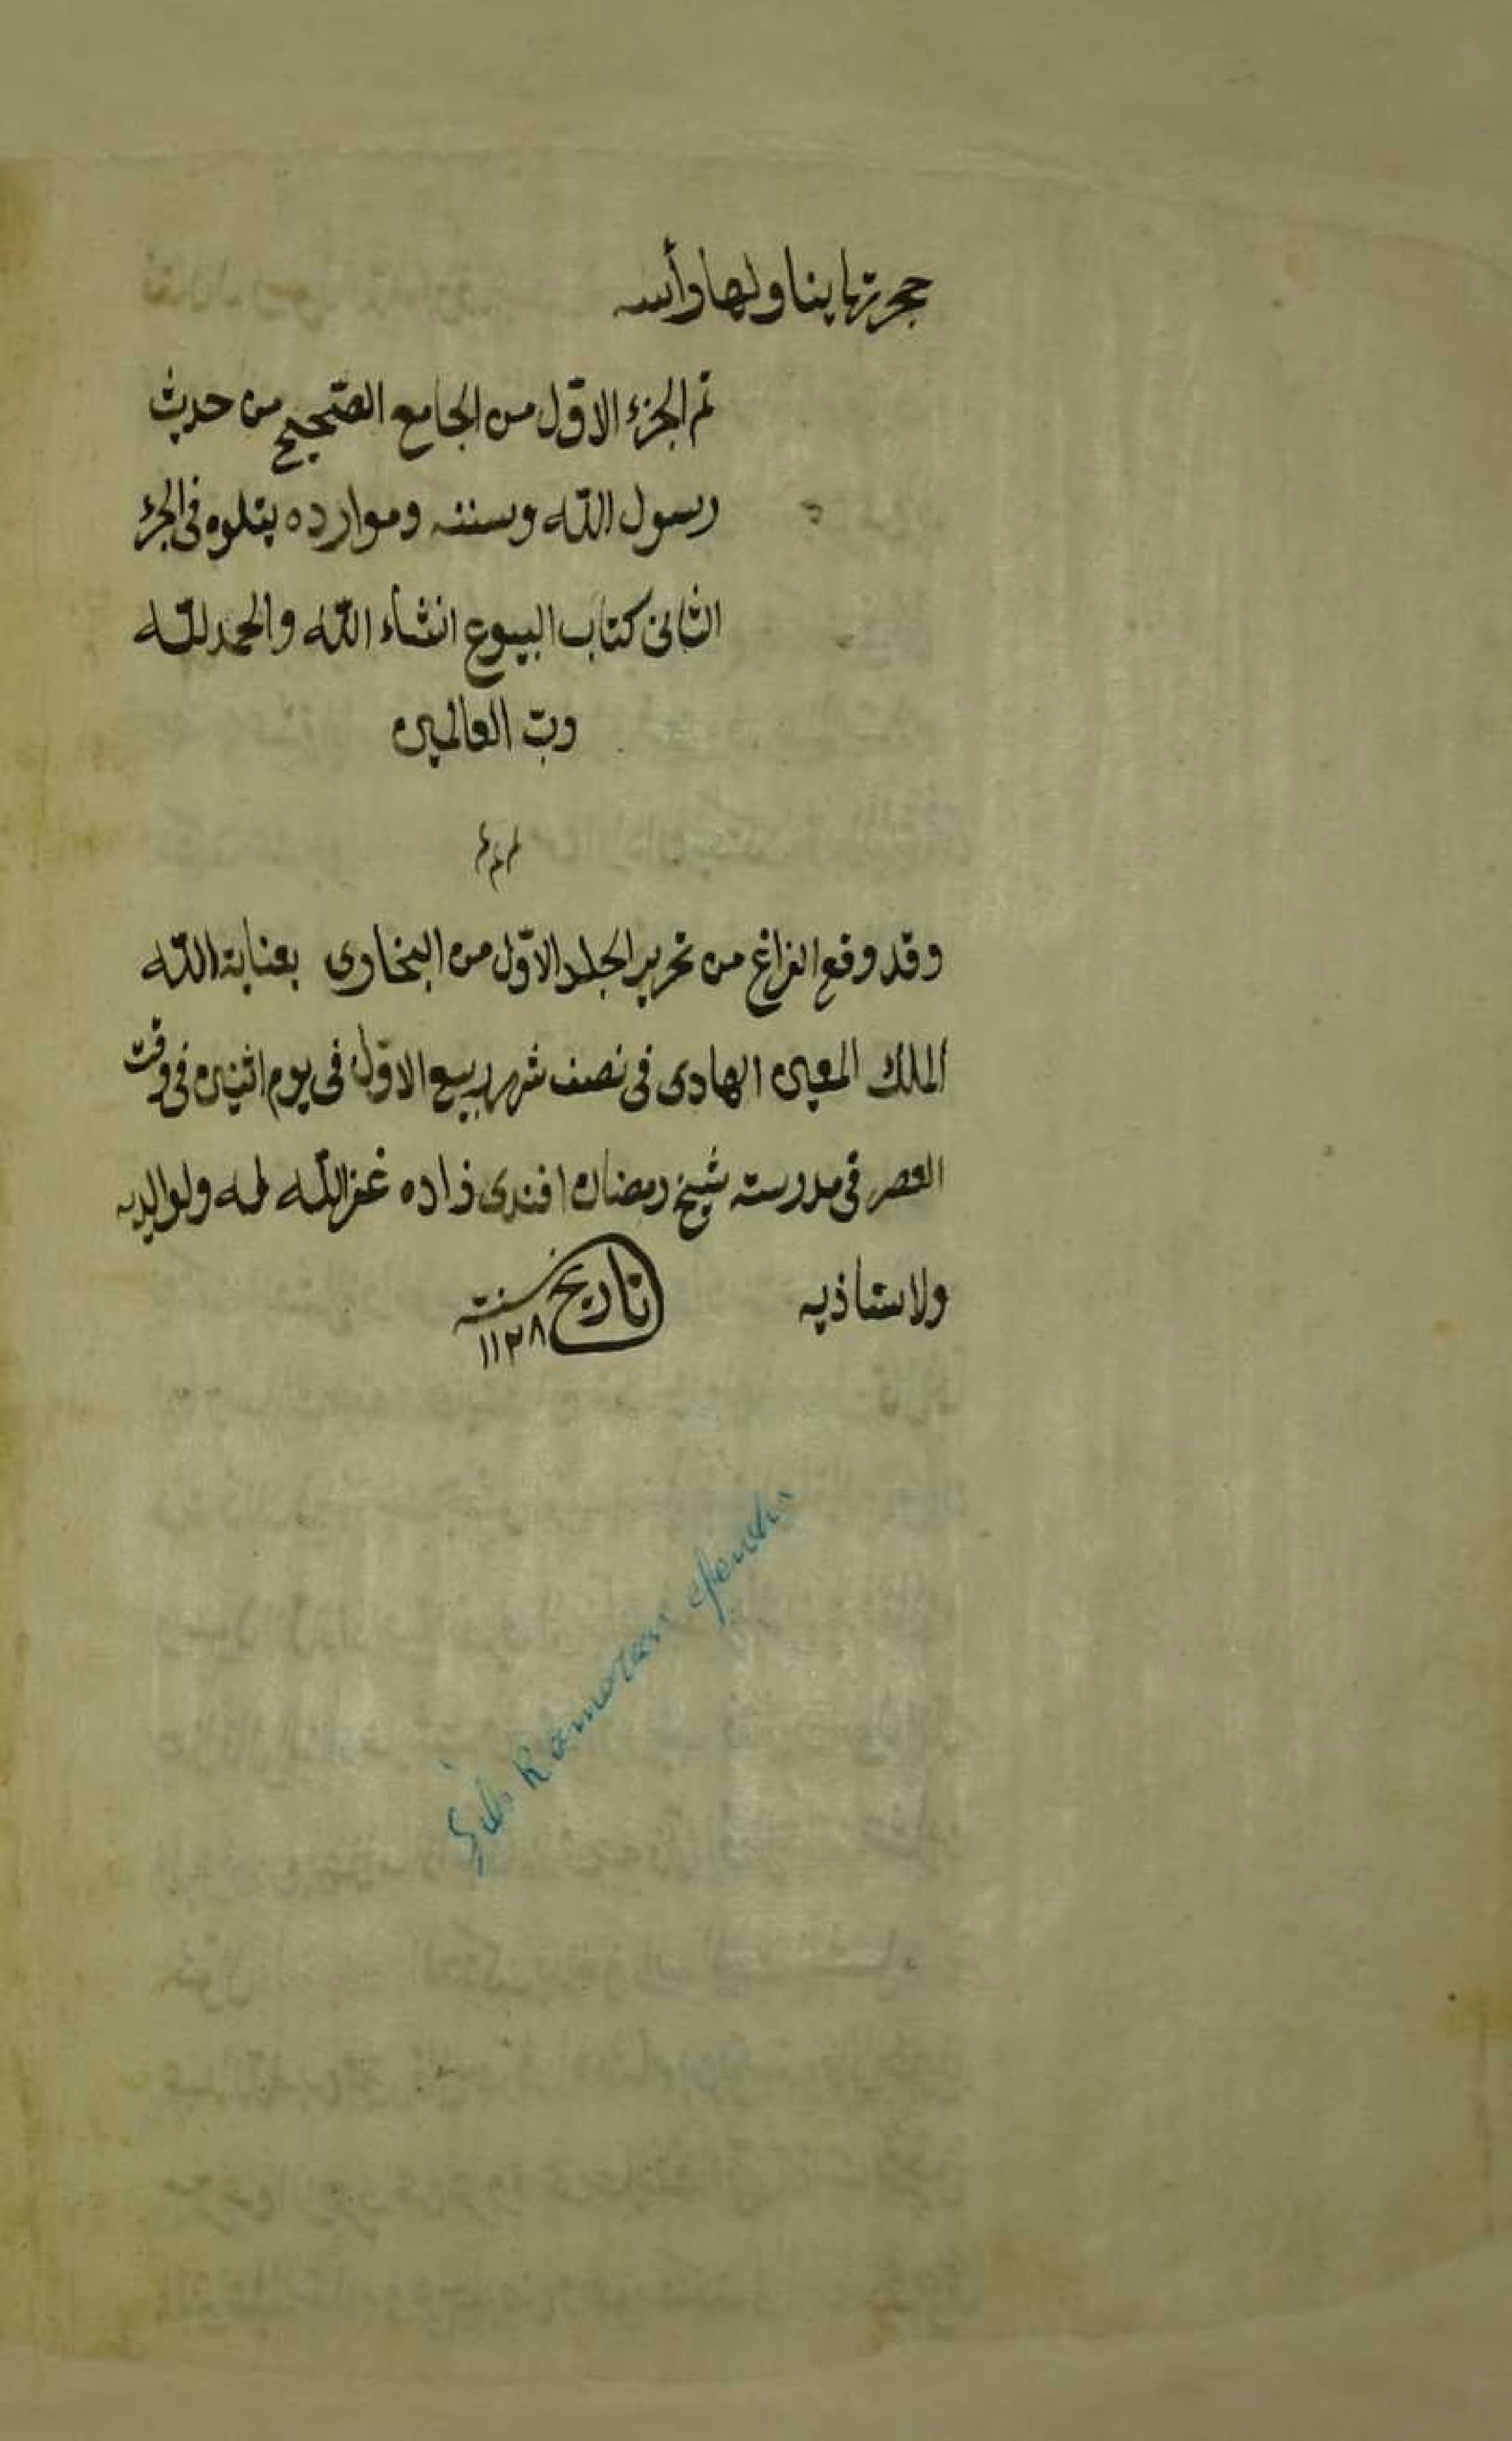 حجرتها يناولها رأسه
تم الجزء الاوّل من الجامع الصّحيح من حديث
رسول اللّه وسننه وموارده يتلوه فى الجزء
الثانى كتاب البيوع انشاء اللّه والحمد للّه
ربّ العالمين
وقد وقع الفراغ من تحرير الجلد الاوّل من البخارى بعناية اللّه
الملك المعين الهادى فى نصف شهر ربيع الاوّل فى يوم اثنين فى وقت
العصر فى مدرسته شيخ رمضان افندى زاده غفر اللّه له ولوالديه
ولاستاذيه
تاريخ سنته
١١٢٨
Ramazan efendi